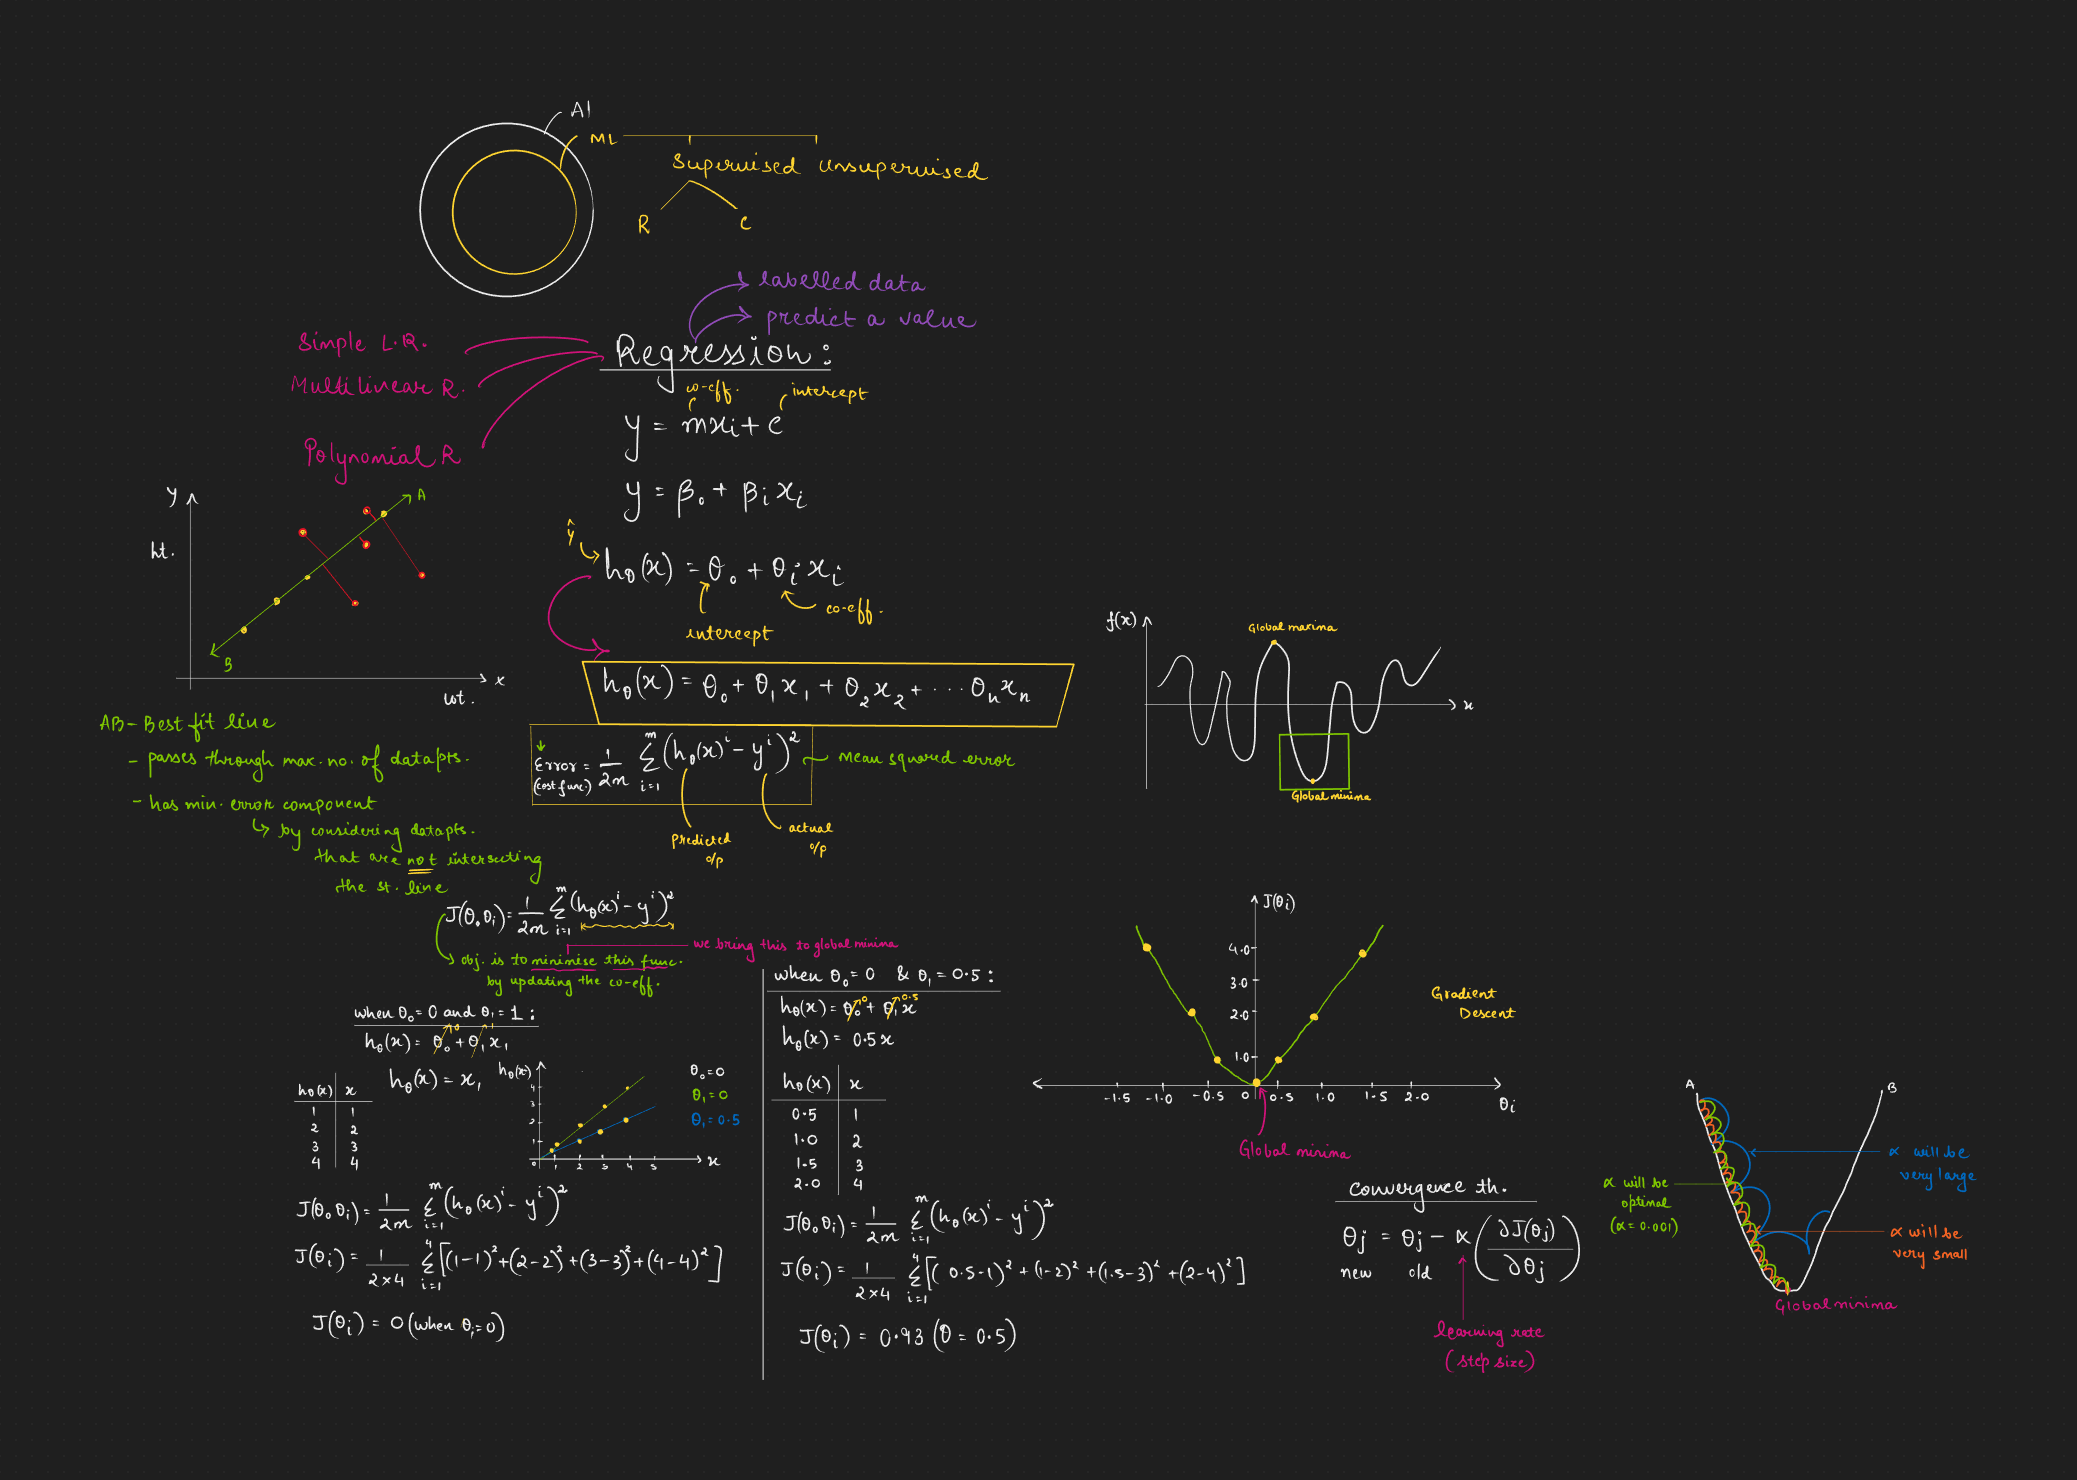 AI
ML
Supervised unsupervised
R C
labelled data
predict a value
Simple L.R.
Multilinear R.
Polynomial R
Regression:
co-eff. intercept
y = mxi + c
y = β₀ + βi xi
ŷ
hθ(x) = θ₀ + θi xi
intercept
co-eff.
hθ(x) = θ₀ + θ₁x₁ + θ₂x₂ + ... θₙxₙ
Error = 1/2m Σ i=1 m (hθ(x)ⁱ - yⁱ)²
(cost func.)
mean squared error
predicted o/p
actual o/p
y
ht.
A
B
x
wt.
AB - Best fit line
- passes through max. no. of datapts.
- has min. error component
↳ by considering datapts.
that are not intersecting
the st. line
J(θ₀ θi) = 1/2m Σ i=1 m (hθ(x)ⁱ - yⁱ)²
we bring this to global minima
obj. is to minimise this func.
by updating the co-eff.
when θ₀ = 0 and θ₁ = 1 :
hθ(x) = θ₀ + θ₁ x₁
0 1
hθ(x) = x₁
hθ(x) x
1 1
2 2
3 3
4 4
hθ(x)
4
3
2
1
0 1 2 3 4 5
x
θ₀ = 0
θ₁ = 0
θ₁ = 0.5
J(θ₀ θi) = 1/2m Σ i=1 m (hθ(x)ⁱ - yⁱ)²
J(θi) = 1/2×4 Σ i=1 4 [(1-1)² + (2-2)² + (3-3)² + (4-4)²]
J(θi) = 0 (when θ₁=0)
when θ₀ = 0 & θ₁ = 0.5 :
hθ(x) = θ₀ + θ₁x
0 0.5
hθ(x) = 0.5x
hθ(x) x
0.5 1
1.0 2
1.5 3
2.0 4
J(θ₀ θi) = 1/2m Σ i=1 m (hθ(x)ⁱ - yⁱ)²
J(θi) = 1/2×4 Σ i=1 4 [(0.5-1)² + (1-2)² + (1.5-3)² + (2-4)²]
J(θi) = 0.93 (θ = 0.5)
f(x)
Global maxima
x
Global minima
J(θi)
4.0
3.0
2.0
1.0
-1.5 -1.0 -0.5 0 0.5 1.0 1.5 2.0
θi
Gradient
Descent
Global minima
convergence th.
θj = θj - α (∂J(θj)/∂θj)
new old
learning rate
(step size)
A
B
α will be
very large
α will be
optimal
(α = 0.001)
α will be
very small
Global minima